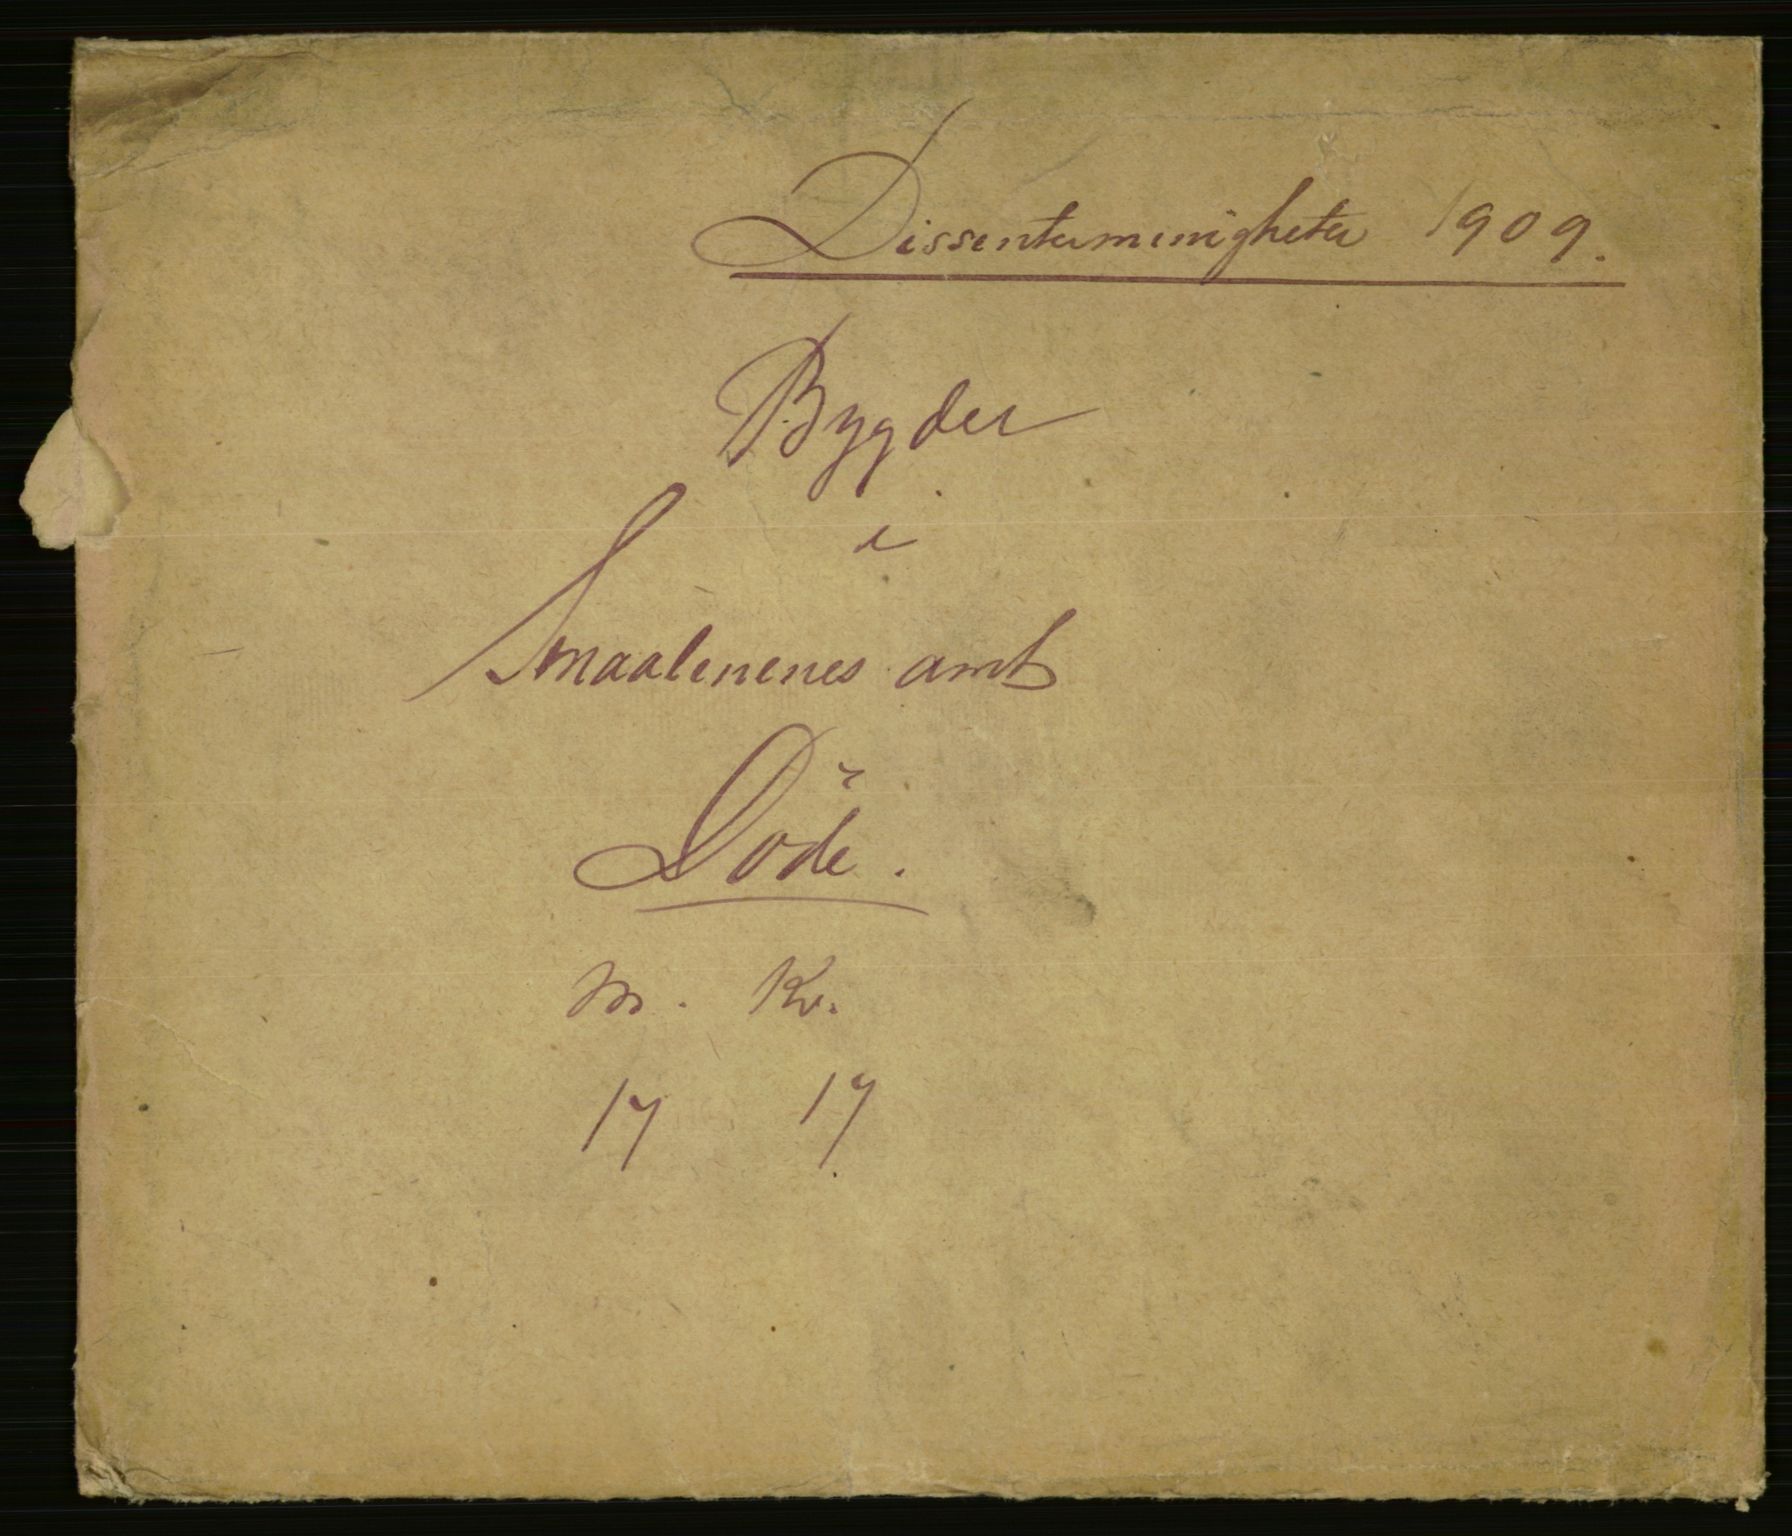 Dissentermenigheter 1909.
Bygder
i
Smaalenenes amt
Döde.
M. Kv.
17 17